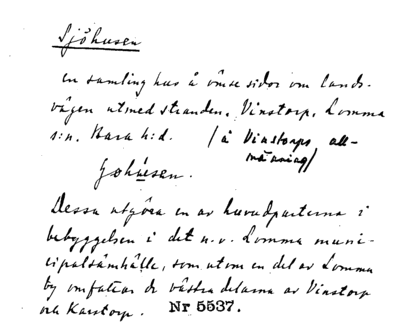 Sjöhusen
en samling hus å ömse sidor om lands-
vägen utmed stranden. Vinstorp, Lomma
s:n. Bara h:d. /å Vinstorps all-
männing/
Dessa utgöra en av huvudparterna i
bebyggelsen i det n.v. Lomma muni-
cipalsamhälle, som utom en del av Lomma
by omfattar de västra delarna av Vinstorp
och Karstorp. Nr 5537.